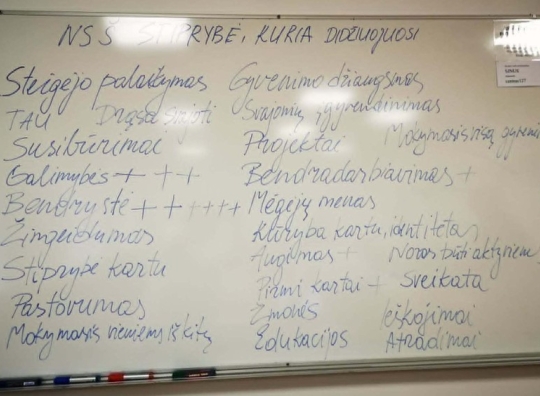 NSŠ STIPRYBĖ, KURIA DIDŽIUOJUOSI
Steigėjo palaikymas
TAU Drąsa svajoti
Susibūrimai
Galimybės + + +
Bendrystė + + + + + +
Žingeidumas
Stiprybė kartu
Pastovumas
Mokymasis vieniems iš kitų
Gyvenimo džiaugsmas
Svajonių įgyvendinimas
Projektai Mokymasis visą gyveni
Bendradarbiavimas +
Mėgėjų menas
Kūryba kartu, identitetas
Augimas + Noras būti aktyviems
Pirmi kartai + Sveikata
Žmonės Ieškojimai
Edukacijos Atradimai